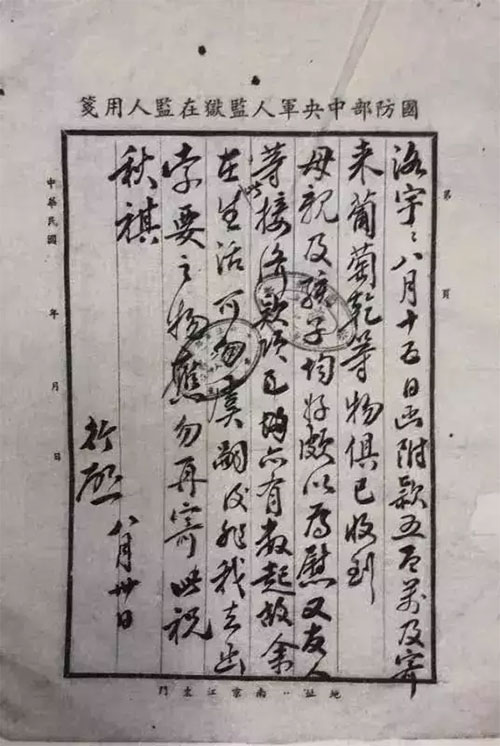 國防部中央軍人監獄在監人用箋
第 頁
洛宇：八月十五日函附款五百萬及寄
来葡萄乾等物俱已收到
母親及孩子均好頗以為慰又友人
等接濟款項已有数起故余
在生活可勿虞嗣後非我去函
索要之物應勿再寄此祝
秋祺
八月卅日
中華民國 年 月 日
地址：南京江東門